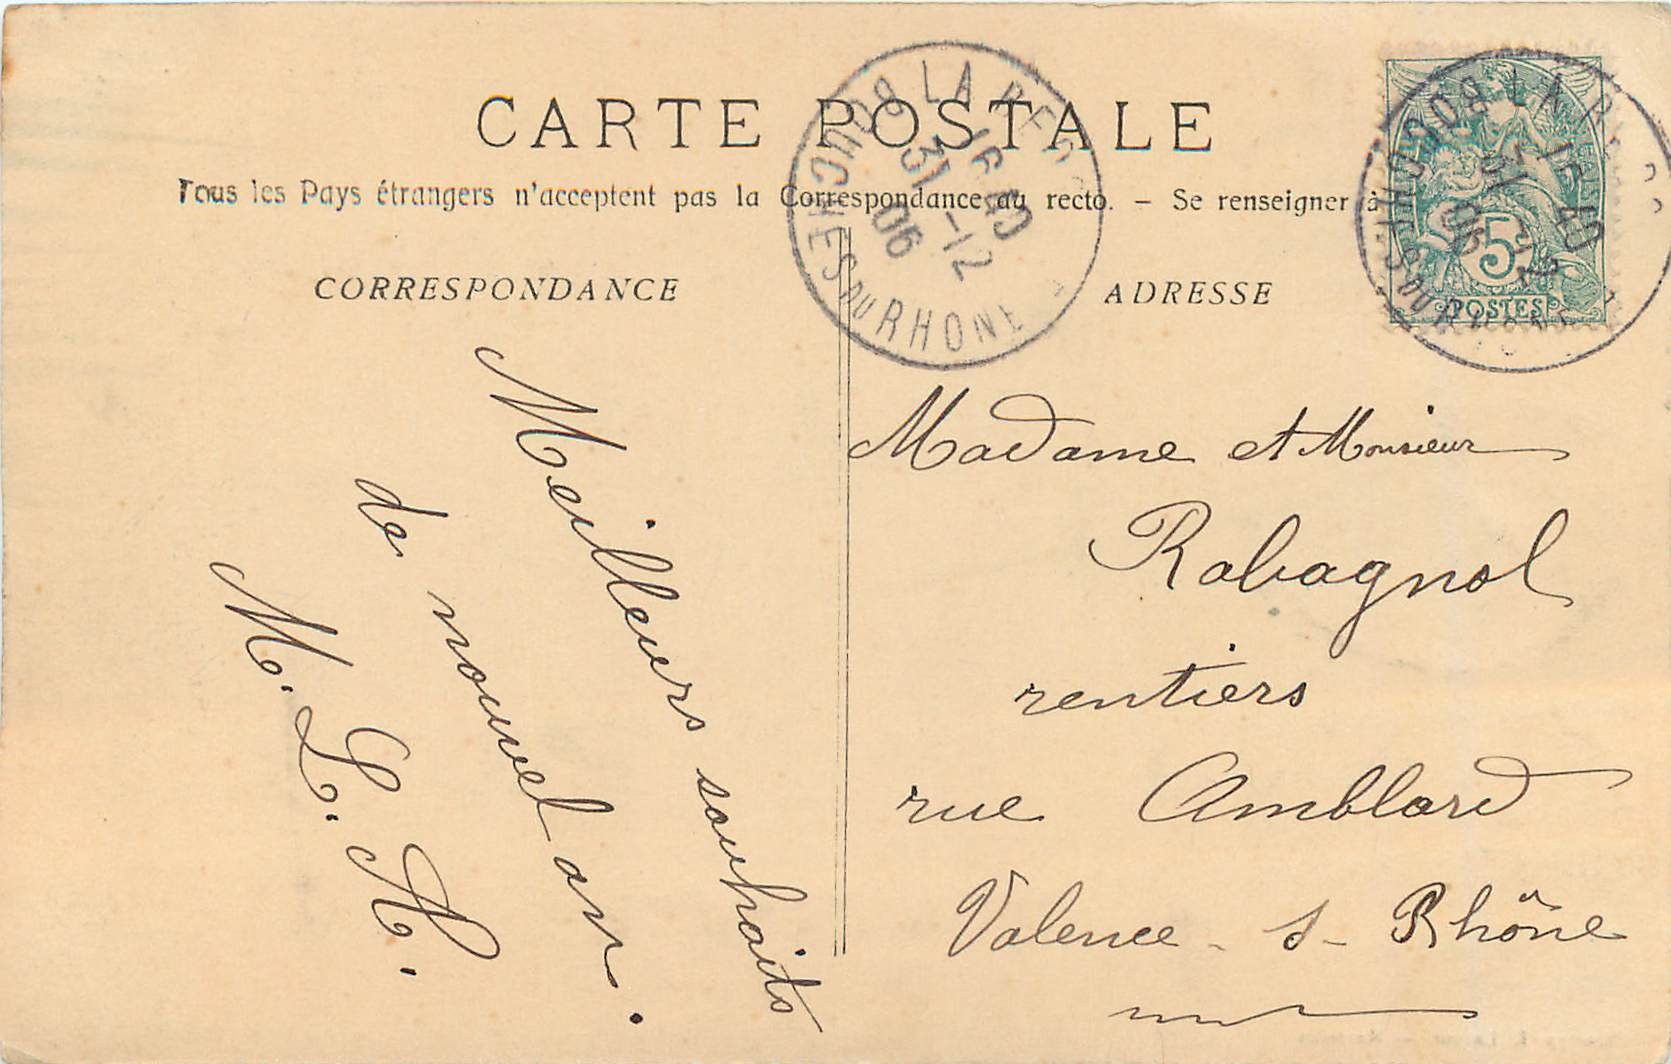 CARTE POSTALE
Tous les Pays étrangers n'acceptent pas la Correspondance au recto. – Se renseigner à
CORRESPONDANCE
Meilleurs souhaits
de nouvel an.
M. L. A.
ADRESSE
Madame et Monsieur
Rabagnol
rentiers
rue Amblard
Valence - s - Rhône
LA
16 40
31 -12
06
BOUCHES DU RHONE
5
POSTES
16 40
31 12
06
BOUCHES DU RHONE